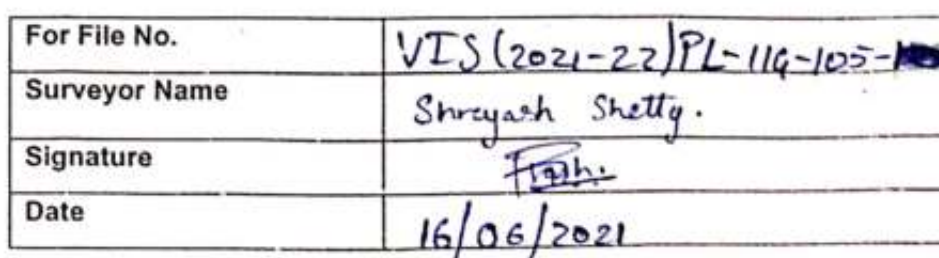 For File No. VIS(2021-22)PL-119-105-
Surveyor Name Shreyash Shetty.
Signature
Date 16/06/2021